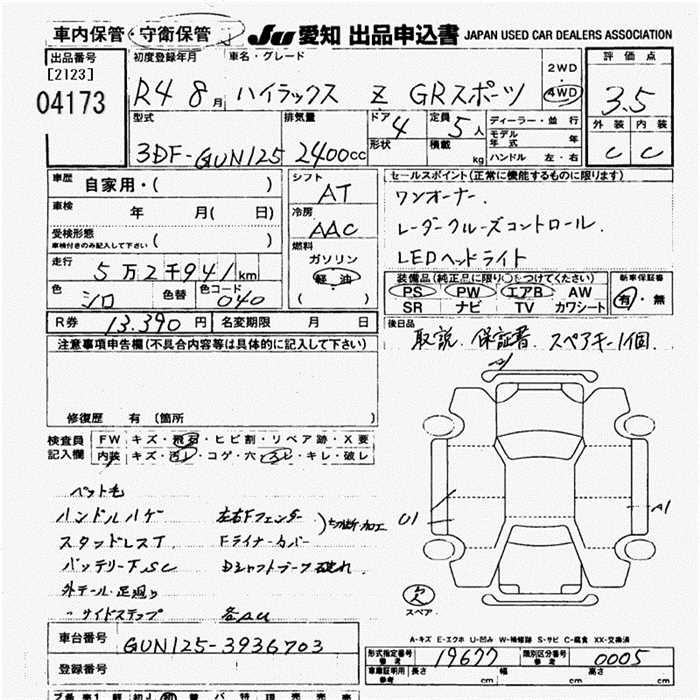 車内保管・守衛保管
JU 愛知 出品申込書 JAPAN USED CAR DEALERS ASSOCIATION
出品番号
[2123]
04173
初度登録年月
R4 8月
車名・グレード
ハイラックス Z GRスポーツ
2WD
4WD
評価点
3.5
外装 内装
C C
型式
3DF-GUN125
排気量
2400cc
ドア 4
形状
定員 5人
積載 kg
ディーラー・並行
モデル年式 年
ハンドル 左・右
車歴 自家用・( )
車検 年 月( 日)
受検形態
車検付きのみ記入して下さい ( )
走行 5万2千941km
色 シロ 色替 色コード 040
シフト
AT
冷房
AAC
燃料
ガソリン
軽油
( )
セールスポイント(正常に機能するものに限ります)
ワンオーナー.
レーダークルーズコントロール.
LEDヘッドライト
装備品(純正品に限り○をつけてください)
PS PW エアB AW
SR ナビ TV カワシート
新車保証書
有・無
R券 13.390円 名変期限 月 日
後日品
取説. 保証書. スペアキー1個.
注意事項申告欄(不具合内容等は具体的に記入して下さい)
修復歴 有 (箇所 )
検査員
記入欄
FW キズ・飛石・ヒビ割・リペア跡・X要
内装 キズ・汚レ・コゲ・穴・スレ・キレ・破レ
ペット毛
ハンドルハゲ 左右Fフェンダー
スタッドレスT Fライナーカバー
切断・加工
バッテリー下SC Dシャフトブーツ破れ
外テール・足廻り
〃サイドステップ 各AU
U1
A1
欠
スペア
A-キズ E-エクボ U-凹み W-補修跡 S-サビ C-腐食 XX-交換済
車台番号 GUN125-3936703
登録番号
形式指定番号
参考
19677
類別区分番号
参考
0005
車庫証明用
参考
長さ cm 幅 cm 高さ cm